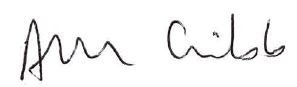 Ann Cribb